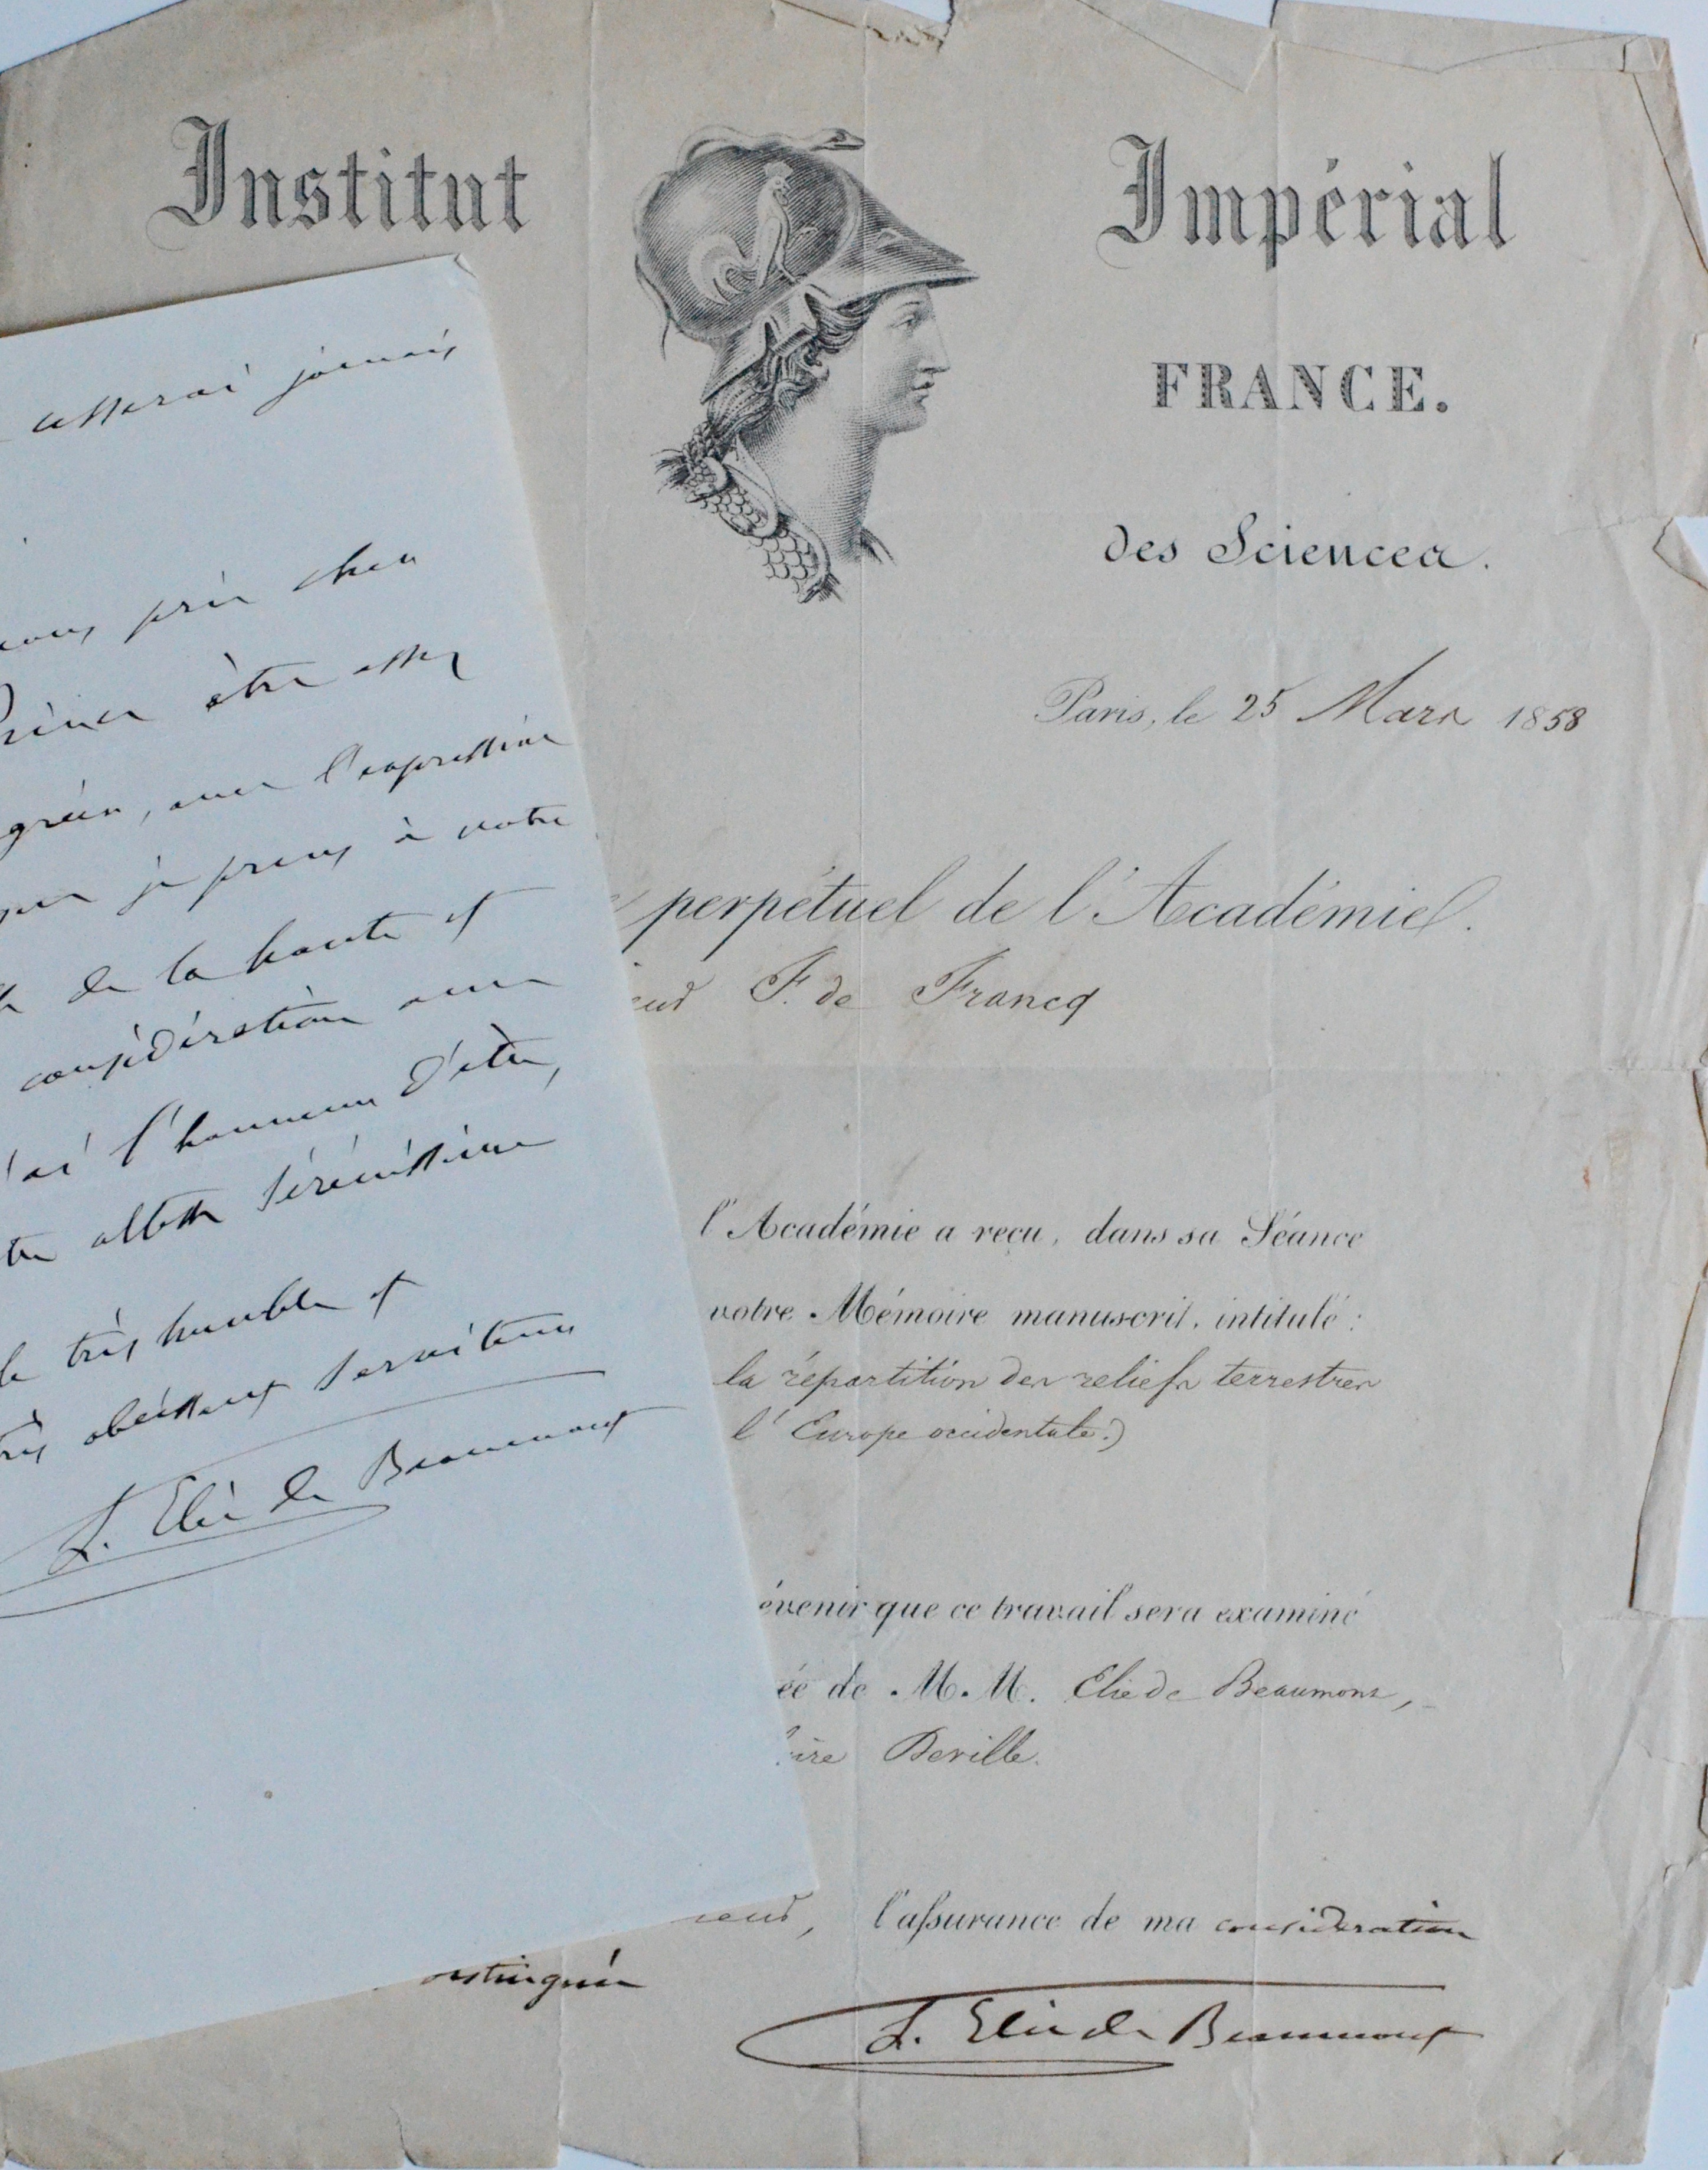 Institut Impérial
FRANCE.
des Sciences.
Paris, le 25 Mars 1858
perpétuel de l'Académie.
F. de Francq
l'Académie a reçu, dans sa Séance
votre Mémoire manuscrit, intitulé :
la répartition des reliefs terrestres
l'Europe occidentale.)
évenir que ce travail sera examiné
ée de M.M. Elie de Beaumont,
ire Deville.
l'assurance de ma considération
distinguée
L. Elie de Beaumont
jamais
prie
Prince être assez
agréer, avec l'expression
que je prens à votre
de la haute et
considération avec
j'ai l'honneur d'être,
altesse sérénissime
le très humble et
très obéissant serviteur
L. Elie de Beaumont